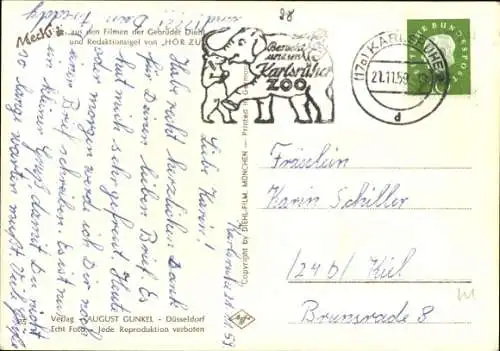 Mecki
aus den Filmen der Gebrüder Diehl
und Redaktionsigel von „HÖR ZU"
28
Besucht
unseren
Karlsruher
ZOO
(17a) KARLSRUHE
21.11.59
d
DEUTSCHE BUNDESPOST
Karlsruhe 21.11.59
Liebe Karin!
Habe recht herzlichen Dank
für Deinen lieben Brief. Es
hat mich sehr gefreut. Heut
oder morgen werde ich Dir noch
einen Brief schreiben. Es ist nur
ein kleiner Gruß damit Du nicht
so lange warten mußt. Viele Grüße
und Dein Freddy
Fräulein
Karin Schiller
(24b) Kiel
Brunsrade 8
Copyright by DIEHL-FILM, MÜNCHEN - Printed in Germany
Verlag AUGUST GUNKEL - Düsseldorf
Echt Foto - Jede Reproduktion verboten